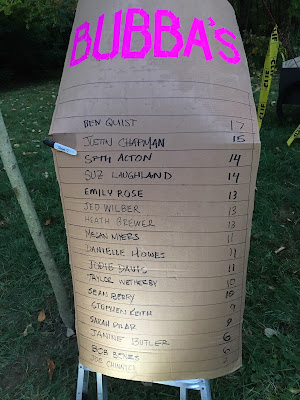 BUBBA'S
BEN QUIST 17
JUSTIN CHAPMAN 15
SETH ALTON 14
SUZ LAUGHLAND 14
EMILY ROSE 13
JED WILBER 13
HEATH BREWER 13
MEGAN MYERS 11
DANIELLE HOWES 11
JODIE DAVIS 11
TAYLOR WETHERBY 10
SEAN BERRY 10
STEPHEN KEITH 9
SARAH 9
JANINE BUTLER 6
BOB BONES 6
JOE